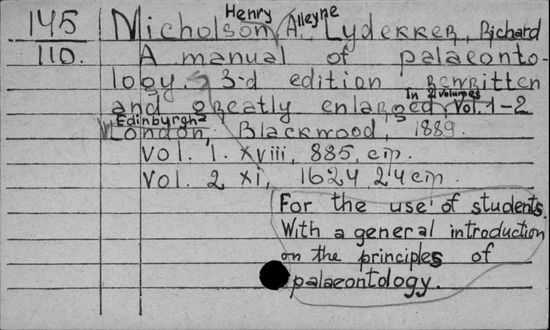 145 Nicholson, Henry Alleyne A. Lydekker, Richard
110. A manual of palaeonto-
logy. 3-d edition rewritten
and greatly enlarged In 2 volumes Vol. 1-2
Edinburgh London, Blackwood, 1889.
Vol. 1. xviii, 885, cm.
Vol. 2 xi, 1624 24 cm.
For the use of students.
With a general introduction
on the principles of
palaeontology.